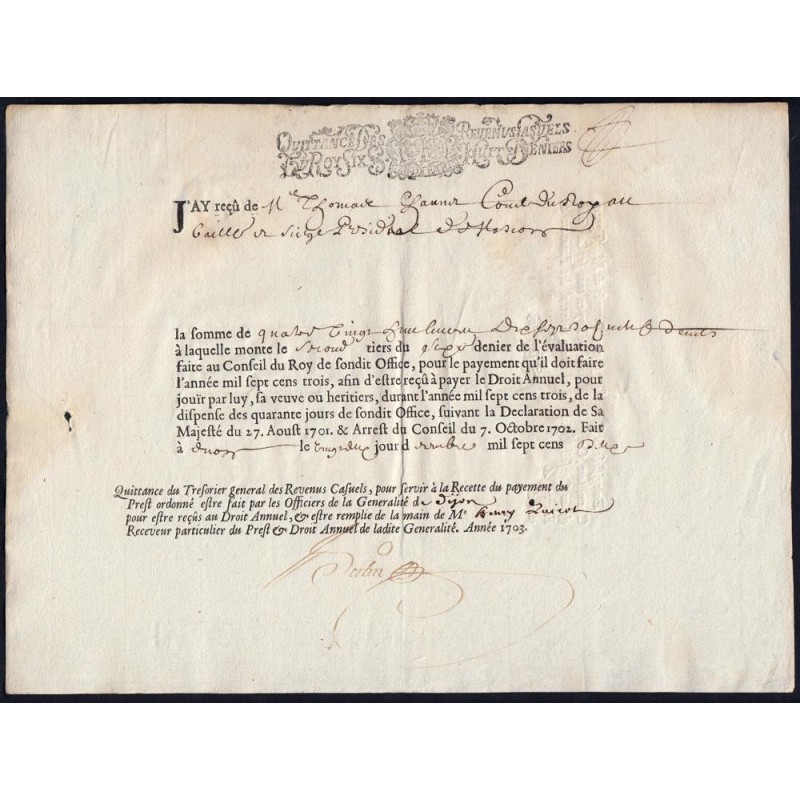 QUITTANCE DES REVENUS CASUELS
DV ROY SIX S HUIT DENIERS
J'AY reçû de Me Thomas Con.er du Roy au
Bailla et siege Presidial de
la somme de quatre vingt livres dix sept sols huit deniers
à laquelle monte le second tiers du sixe denier de l'évaluation
faite au Conseil du Roy de sondit Office, pour le payement qu'il doit faire
l'année mil sept cens trois, afin d'estre reçû à payer le Droit Annuel, pour
jouïr par luy, sa veuve ou heritiers, durant l'année mil sept cens trois, de la
dispense des quarante jours de sondit Office, suivant la Declaration de Sa
Majesté du 27. Aoust 1701. & Arrest du Conseil du 7. Octobre 1702. Fait
à le jour d mil sept cens deux
Quittance du Tresorier general des Revenus Casuels, pour servir à la Recette du payement du
Prest ordonné estre fait par les Officiers de la Generalité de Dijon
pour estre reçûs au Droit Annuel, & estre remplie de la main de Me Henry
Receveur particulier du Prest & Droit Annuel de ladite Generalité. Année 1703.